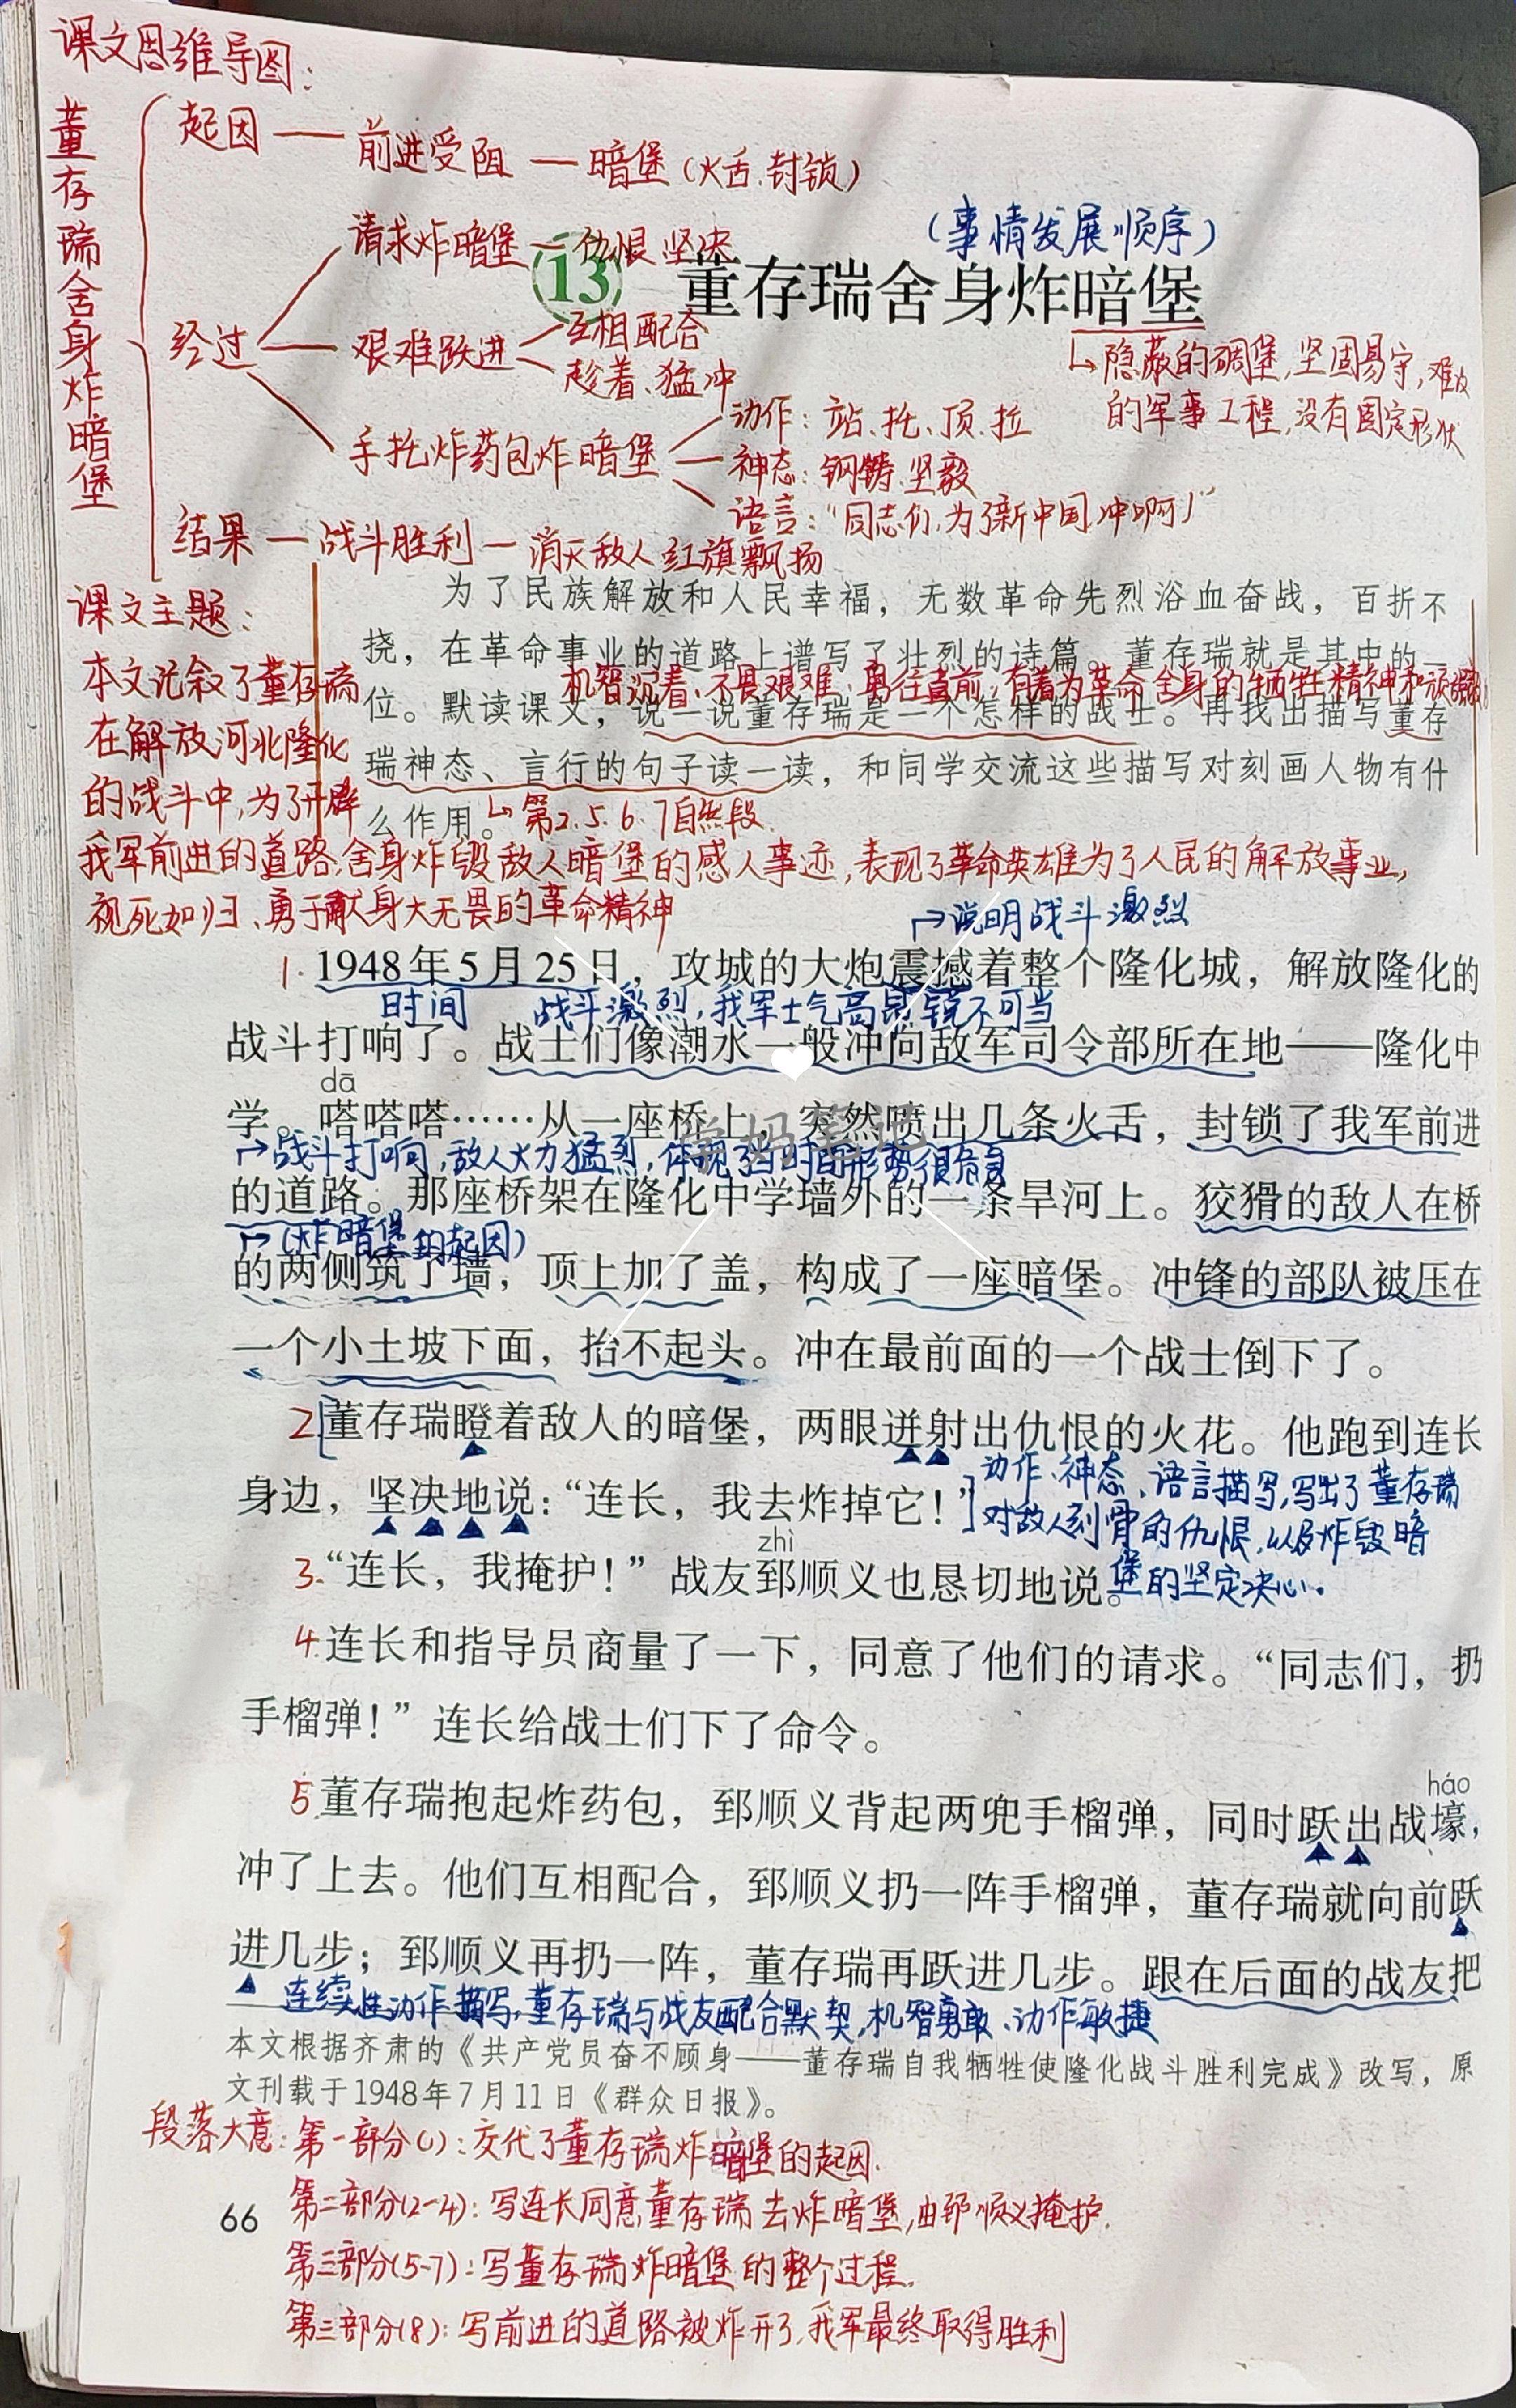 课文思维导图:
董存瑞舍身炸暗堡
起因 — 前进受阻 — 暗堡(火舌、封锁)
经过
请求炸暗堡 — 仇恨、坚决
艰难跃进
互相配合
趁着、猛冲
手托炸药包炸暗堡
动作:站、托、顶、拉
神态:钢铸、坚毅
语言:“同志们,为了新中国,冲啊!”
结果 — 战斗胜利 — 消灭敌人 红旗飘扬
(事情发展顺序)
13 董存瑞舍身炸暗堡
隐蔽的碉堡,坚固易守,难攻
的军事工程,没有固定形状
为了民族解放和人民幸福,无数革命先烈浴血奋战,百折不
挠,在革命事业的道路上谱写了壮烈的诗篇。董存瑞就是其中的一
机智沉着、不畏艰难、勇往直前,有着为革命舍身的牺牲精神和
位。默读课文,说一说董存瑞是一个怎样的战士。再找出描写董存
瑞神态、言行的句子读一读,和同学交流这些描写对刻画人物有什
么作用。
第2.5.6.7自然段.
课文主题:
本文记叙了董存瑞
在解放河北隆化
的战斗中,为了开辟
我军前进的道路,舍身炸毁敌人暗堡的感人事迹,表现了革命英雄为了人民的解放事业,
视死如归、勇于献身大无畏的革命精神
说明战斗激烈
1. 1948年5月25日,攻城的大炮震撼着整个隆化城,解放隆化的
时间 战斗激烈,我军士气高昂,锐不可当
战斗打响了。战士们像潮水一般冲向敌军司令部所在地——隆化中
dā
学。嗒嗒嗒……从一座桥上,突然喷出几条火舌,封锁了我军前进
学妈笔记
战斗打响,敌人火力猛烈,体现了当时的形势很危急
的道路。那座桥架在隆化中学墙外的一条旱河上。狡猾的敌人在桥
(炸暗堡的起因)
的两侧筑了墙,顶上加了盖,构成了一座暗堡。冲锋的部队被压在
一个小土坡下面,抬不起头。冲在最前面的一个战士倒下了。
2.董存瑞瞪着敌人的暗堡,两眼迸射出仇恨的火花。他跑到连长
身边,坚决地说:“连长,我去炸掉它!”
动作、神态、语言描写,写出了董存瑞
对敌人刻骨的仇恨,以及炸毁暗
堡的坚定决心.
zhì
3.“连长,我掩护!”战友郅顺义也恳切地说。
4.连长和指导员商量了一下,同意了他们的请求。“同志们,扔
手榴弹!”连长给战士们下了命令。
háo
5.董存瑞抱起炸药包,郅顺义背起两兜手榴弹,同时跃出战壕,
冲了上去。他们互相配合,郅顺义扔一阵手榴弹,董存瑞就向前跃
进几步;郅顺义再扔一阵,董存瑞再跃进几步。跟在后面的战友把
连续性动作描写,董存瑞与战友配合默契,机智勇敢、动作敏捷
本文根据齐肃的《共产党员奋不顾身——董存瑞自我牺牲使隆化战斗胜利完成》改写,原
文刊载于1948年7月11日《群众日报》。
段落大意:第一部分(1):交代了董存瑞炸暗堡的起因.
第二部分(2-4):写连长同意董存瑞去炸暗堡,由郅顺义掩护.
第三部分(5-7):写董存瑞炸暗堡的整个过程.
第三部分(8):写前进的道路被炸开了,我军最终取得胜利
66